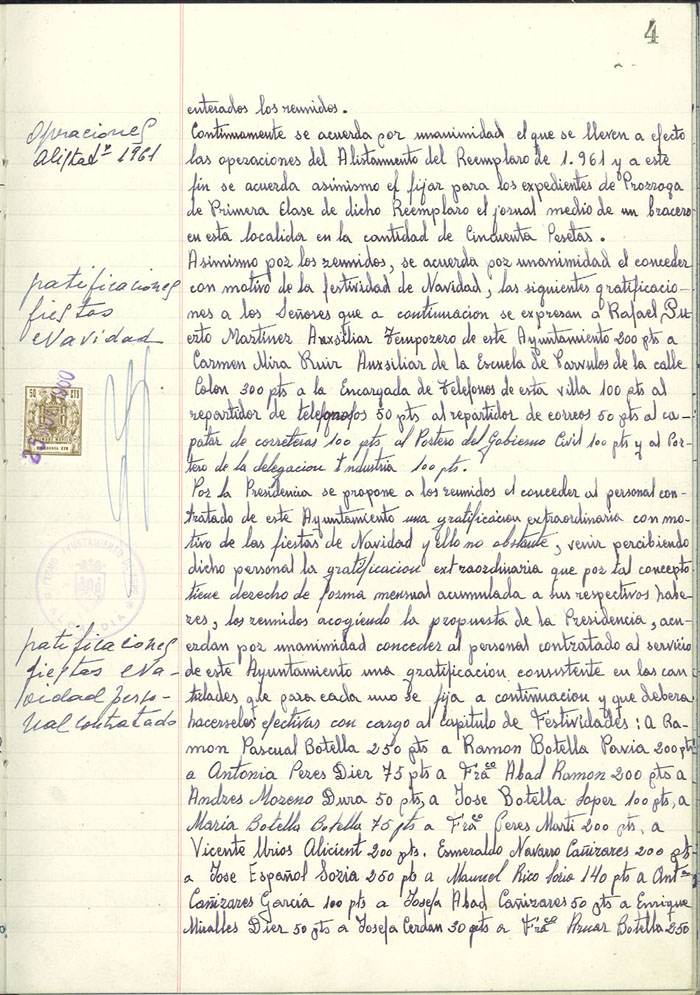 4
enterados los reunidos.
Operaciones
Alistadº 1961
Continuamente se acuerda por unanimidad el que se lleven a efecto
las operaciones del Alistamiento del Reemplazo de 1.961 y a este
fin se acuerda asimismo el fijar para los expedientes de Prozroga
de Primera Clase de dicho Reemplazo el jornal medio de un bracero
en esta localida en la cantidad de Cincuenta Pesetas.
gratificaciones
fiestas
Navidad
Asimismo por los reunidos, se acuerda por unanimidad el conceder
con motivo de la festividad de Navidad, las siguientes gratificacio-
nes a los Señores que a continuacion se expresan a Rafael Pu
erto Martinez Auxsiliar Tempozero de este Ayuntamiento 200 pts a
Carmen Mira Ruir Auxsiliar de la Escuela de Parvulos de la calle
Colon 300 pts a la Encargada de Telefonos de esta villa 100 pts al
repartidor de telefonos 50 pts al repartidor de correos 50 pts al ca-
patar de correteras 100 pts, al Portero del Gobierno Civil 100 pts y al Por-
tero de la delegacion Industria 100 pts.
50 CTS
Por la Presidencia se propone a los reunidos el conceder al personal con-
tratado de este Ayuntamiento una gratificacion extraordinaria con mo-
tivo de las fiestas de Navidad y ello no obstante, venir percibiendo
dicho personal la gratificacion extraordinaria que por tal concepto
tiene derecho de forma mensual acumulada a sus respectivos habe-
res, los reunidos acogiendo la propuesta de la Presidencia, acu-
erdan por unanimidad conceder al personal contratado al servicio
de este Ayuntamiento una gratificacion consistente en las can-
tidades que para cada uno se fija a continuacion y que debera
hacerseles efectivas con cargo al capitulo de Festividades: a Ra-
gratificaciones
fiestas Na-
vidad perso-
nal contratado
mon Pascual Botella 250 pts a Ramon Botella Pavia 200 pts
a Antonia Peres Dier 75 pts a Fraco Abad Ramon 200 pts a
Andres Moreno Dura 50 pts, a Jose Botella Soper 100 pts, a
Maria Botella Botella 75 pts a Fraco Peres Marti 200 pts, a
Vicente Urios Alicient 200 pts. Esmeraldo Navarro Cañizares 200 pts
a Jose Español Sozia 250 pts a Manuel Rico 140 pts a Antº
Cañizares García 100 pts a Josefa Abad Cañizares 50 pts a Enrique
Miralles Dier 50 pts a Josefa Cerdan 30 pts a Fraco Aznar Botella 250